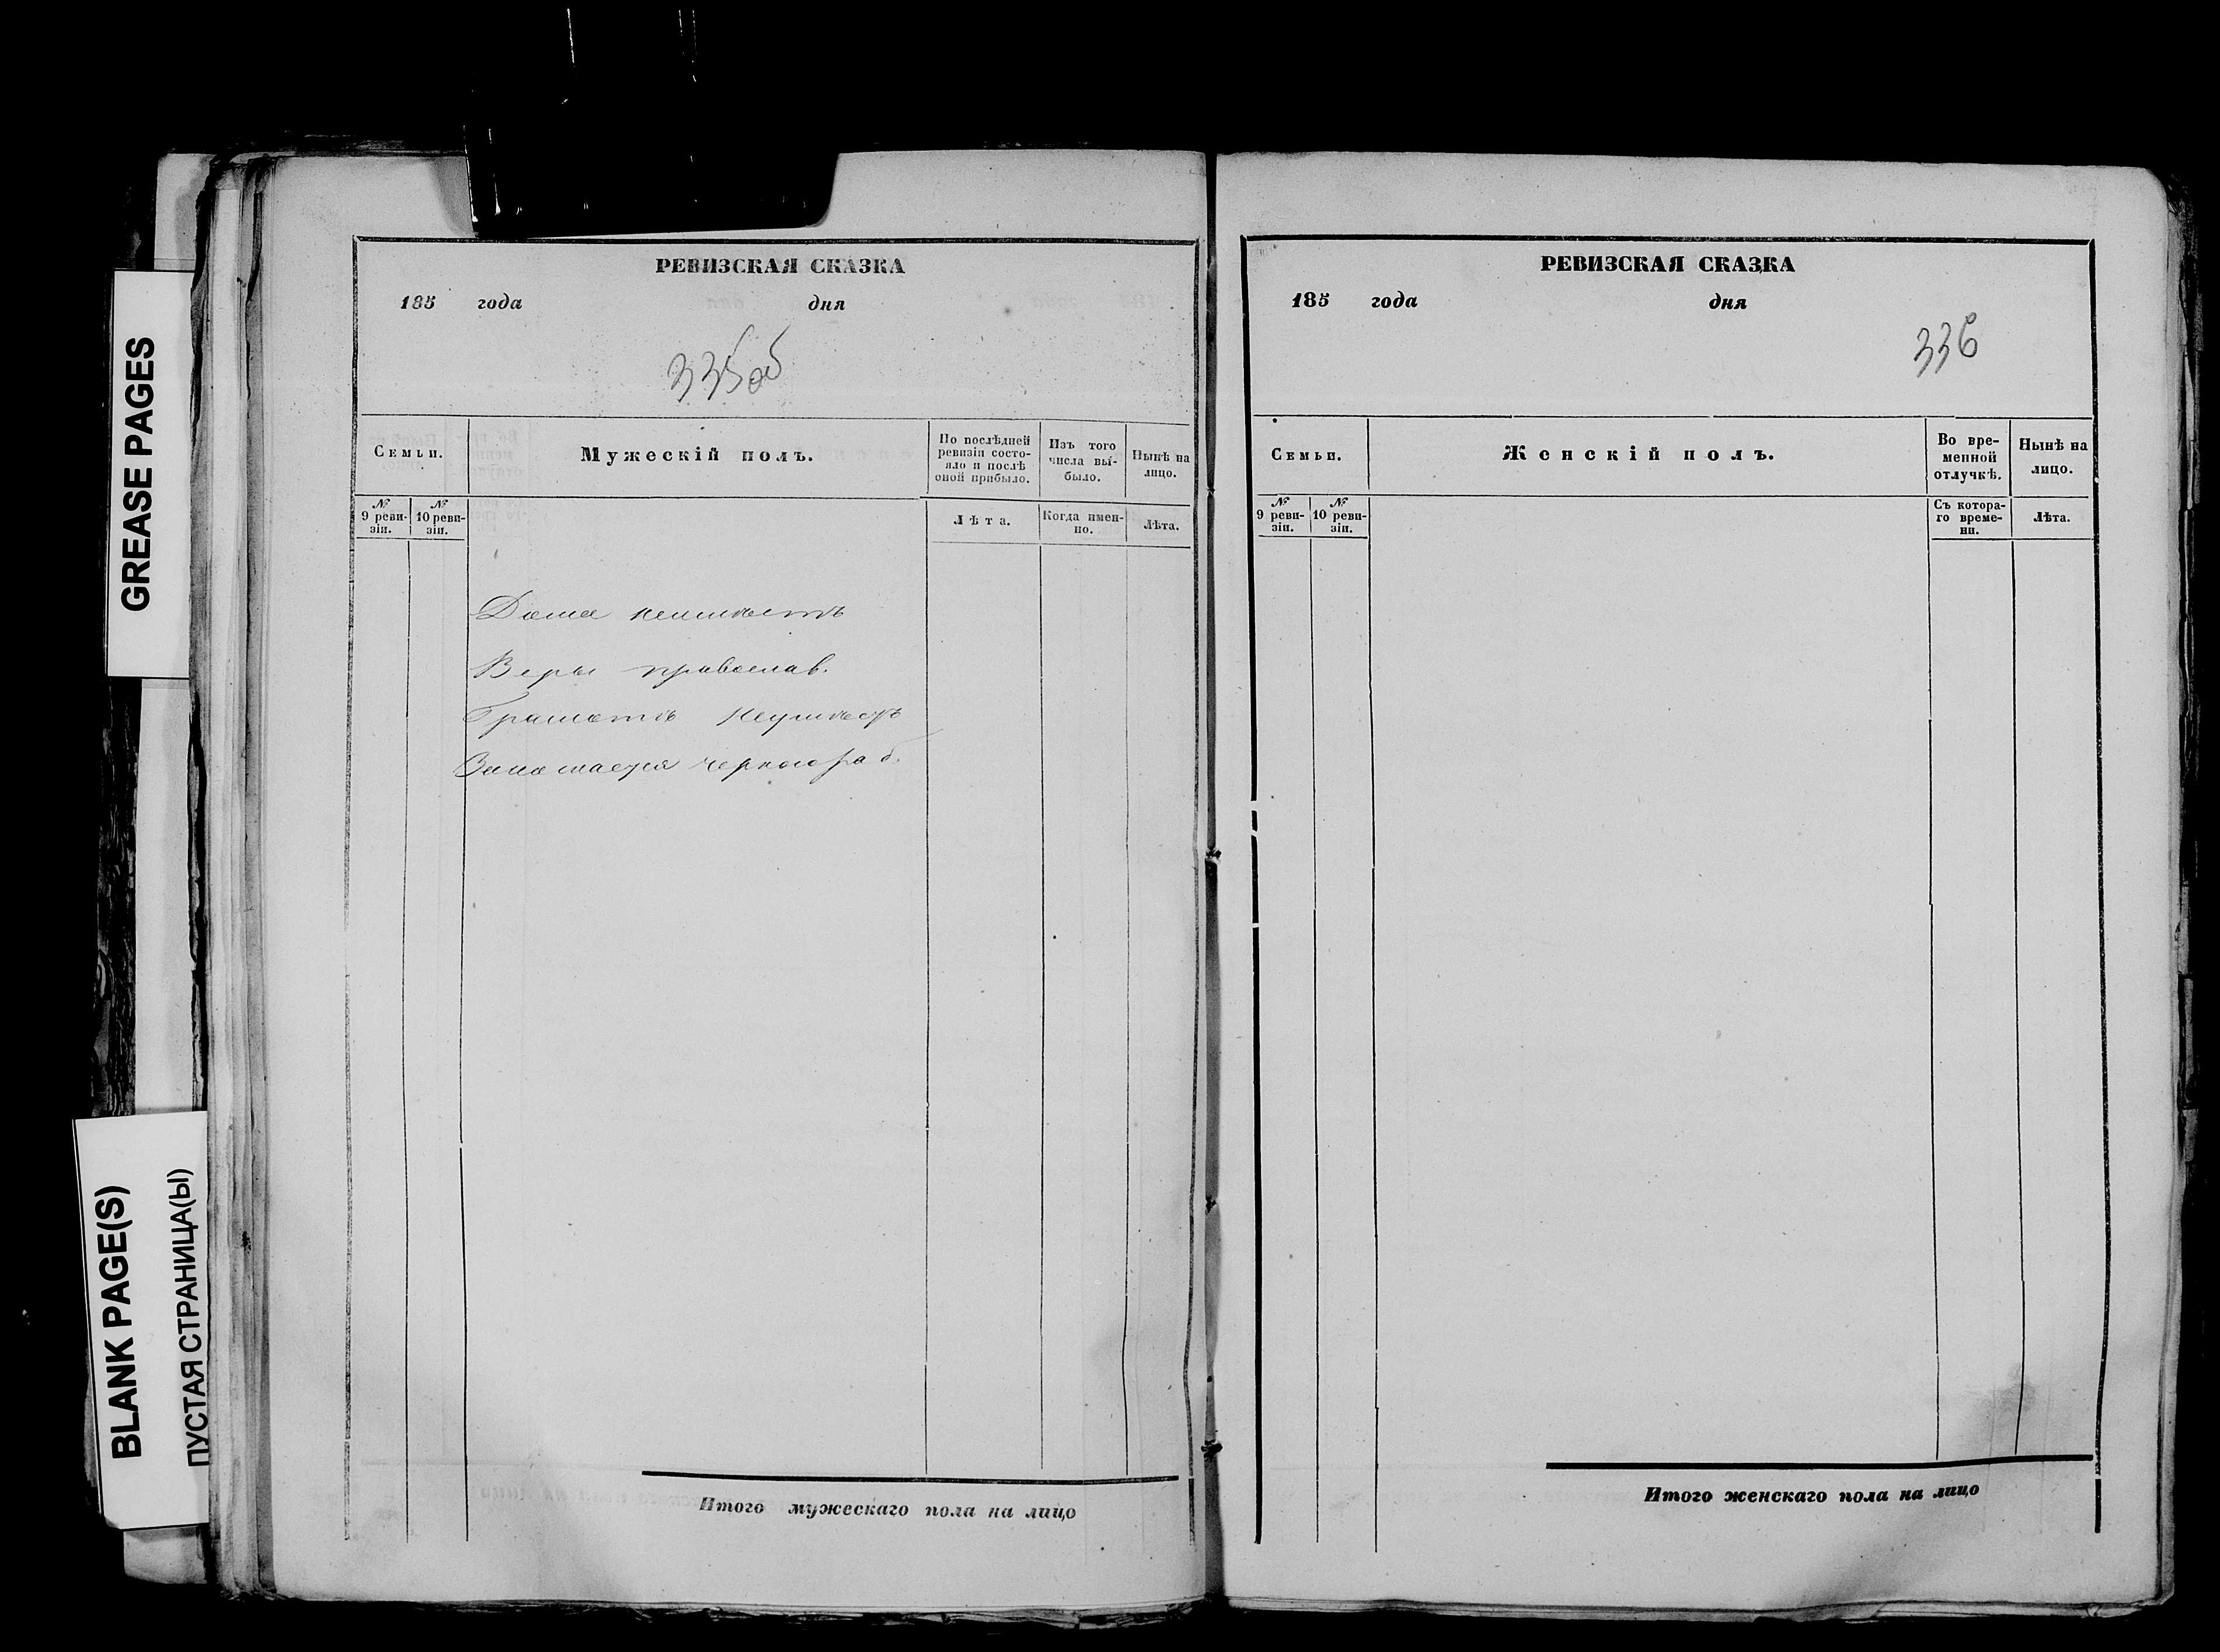 GREASE PAGES
BLANK PAGE(S)
ПУСТАЯ СТРАНИЦА(Ы)
РЕВИЗСКАЯ СКАЗКА
185 года дня
335 об
Семьи.
Мужескій полъ.
По послѣдней ревизіи состо-
яло и послѣ
оной прибыло.
Изъ того
числа вы-
было.
Нынѣ на
лицо.
№
9 реви-
зіи.
№
10 реви-
зіи.
Лѣта.
Когда имен-
но.
Лѣта.
Дома неимѣетъ
Веры православ.
Грамотѣ неумѣетъ
Занимается чернораб.
Итого мужескаго пола на лицо
РЕВИЗСКАЯ СКАЗКА
185 года дня
336
Семьи.
Женскій полъ.
Во вре-
менной
отлучкѣ.
Нынѣ на
лицо.
№
9 реви-
зіи.
№
10 реви-
зіи.
Съ котора-
го време-
ни.
Лѣта.
Итого женскаго пола на лицо